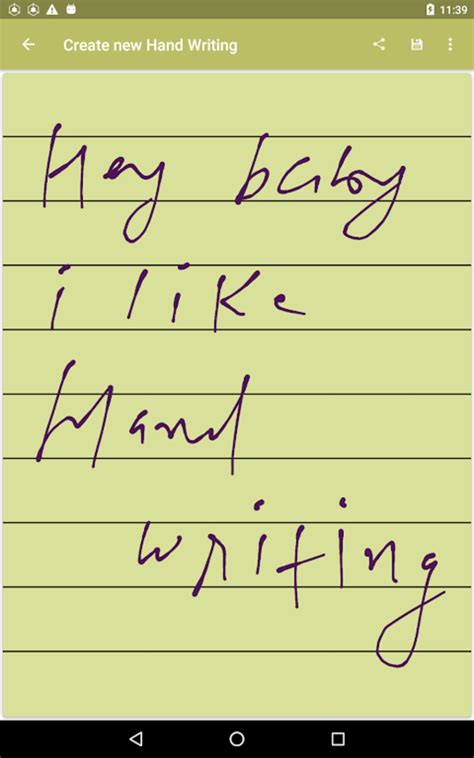 11:39
Create new Hand Writing
Hey baby
i like
Hand
writing